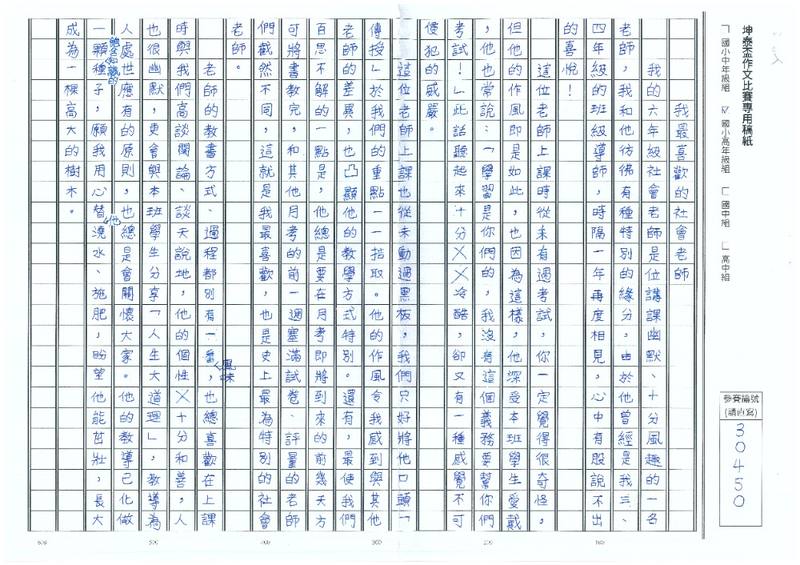 坤泰盃作文比賽專用稿紙
國小中年級組 ☑ 國小高年級組 國中組 高中組
參賽編號
(請直寫)
30450
我最喜歡的社會老師
我的六年級社會老師是位講課幽默、十分風趣的一名
老師，我和他彷彿有種特別的緣分，由於他曾經是我三、
四年級的班級導師，時隔一年再度相見，心中有股說不出
的喜悅！
這位老師上課時從未有過考試，你一定覺得很奇怪，
但他的作風即是如此，也因為這樣，他深受本班學生愛戴
，他也常說：「學習是你們的，我沒有這個義務要幫你們
考試！」此話聽起來十分冷酷，卻又有一種感覺不可
侵犯的威嚴。
這位老師上課也從未動過黑板，我們只好將他口頭「
傳授」於我們的重點一一拮取。他的作風令我感到與其他
老師的差異，也凸顯他的教學方式特別。還有，最使我們
百思不解的一點是，他總是要在月考即將到來的前幾天方
可將書教完，和其他月考的前一週塞滿試卷、評量的老師
們截然不同，這就是我最喜歡，也是史上最為特別的社會
老師。
老師的教書方式、過程都別有一番風味，也總喜歡在上課
時與我們高談闊論、談天說地，他的個性十分和善，人
也很幽默，更會與本班學生分享「人生大道理」，教導為
人處世應有的原則，也總是會關懷大家。他的教導已化做
一顆飽含知識的種子，願我用心替他澆水、施肥，盼望他能茁壯，長大
成為一棵高大的樹木。
100
200
300
400
500
600